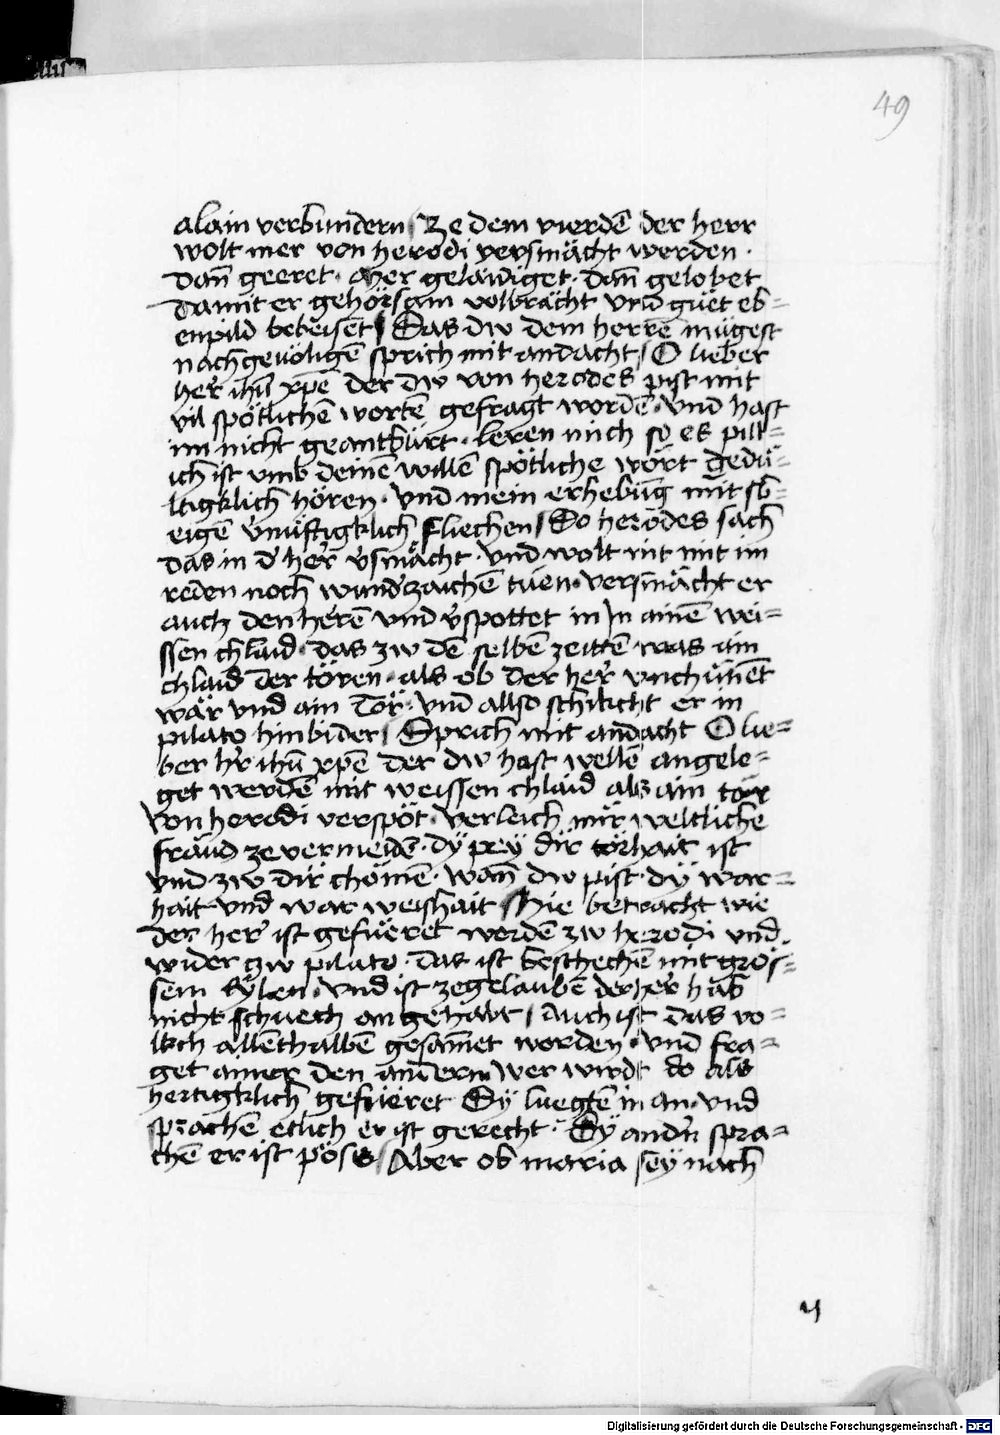 49
alain verbundern Ze dem vierdē der herr
wolt mer von herodi versmächt werden ·
dan̄ geeret · Mer gelaidiget · dan̄ gelobet
damit er gehörsam volbrächt vnd guet eb=
enpild beweiset Das dw dem herrē mügest
nachgevölgen̄ sprich mit andacht O lieber
her̄ ihū xp̄e der dw von herodes pist mit
vil spötlichē wortē gefragt wordē · vnd hast
im nicht geantbürt · leren mich so es pill=
ich ist vmb deinē willē spötliche wört gedü=
ltigklich hören · vnd mein erhebūg mit sb=
eigē v̄nüftigklich fliechen Do herodes sach
das in d' her̄ v̄smächt · vnd wolt nit mit im
reden noch wund'zaichē tuen · versmächt er
auch den herē vnd v̄spottet in Jn ainē wei=
ssen chlaid · das zw dē selbē zeittē was ain
chlaid der tören · als ob der her̄ vnchūnēt
wär vnd ain Tör · vnd allso schikcht er in
pilato hinbider Sprich mit andacht O lie=
ber h'r ihū xp̄e der dw hast wellē angele=
get werdē mit weissen chlaid als ain tor
von herodi verspöt · verleich mir weltliche
fräud ze vermeidē · dy pey dir törhait ist
vnd zw dir chömē · wan̄ dw pist dy war=
hait vnd war weishait Hie betracht wie
der her̄ ist gefüeret wordē zw herodi vnd
wider zw pilato · das ist beschechē mit grös=
sem eylen · vnd ist ze gelaubē der her̄ hab
nicht schuech an gehabt Auch ist das vo=
lkch allēthalbē gesām̄et worden · vnd fra=
get ainer den andern wer wirdt do als
hertigklich gefüeret Dy luegtē in an · vnd
sprachē etlich er ist gerecht · Dy and'n spra=
chē er ist pöss Aber ob maria sey nach
Digitalisierung gefördert durch die Deutsche Forschungsgemeinschaft - DFG